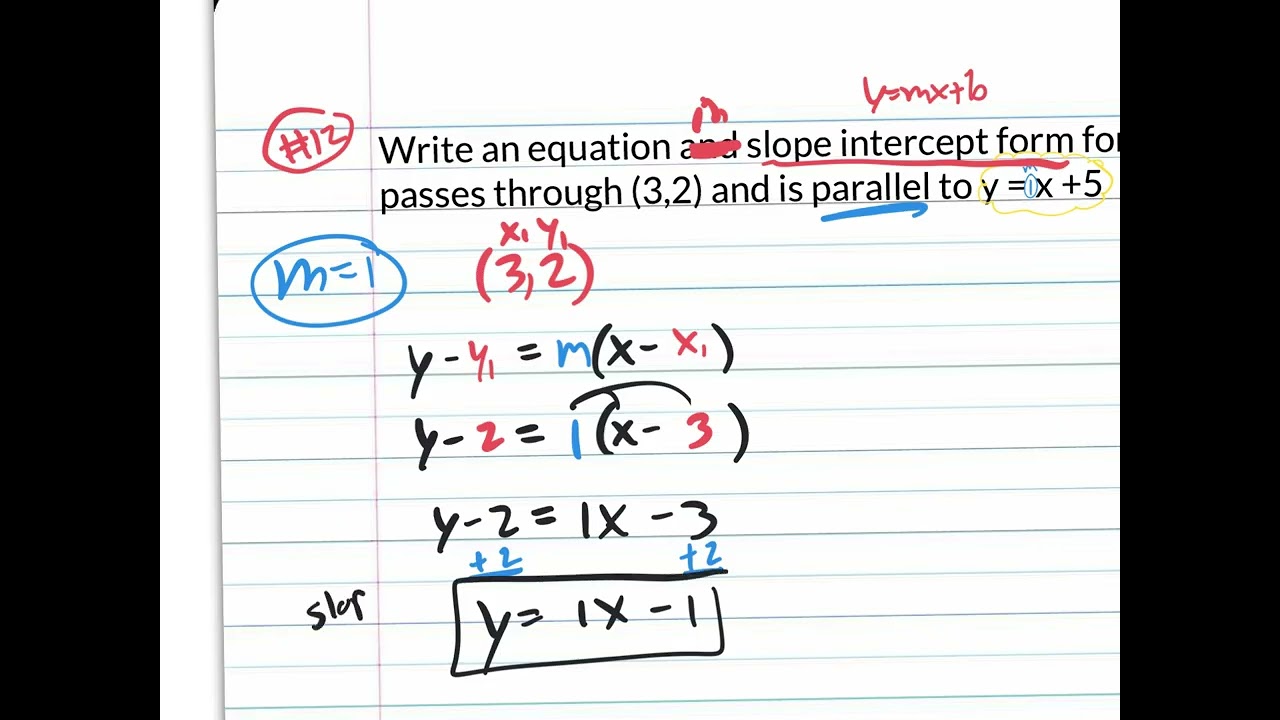 y=mx+b
#12
in
Write an equation and slope intercept form for
m
passes through (3,2) and is parallel to y = 1x +5
x₁ y₁
m=1 (3,2)
y - y₁ = m(x - x₁)
y - 2 = 1(x - 3)
y - 2 = 1x - 3
+2 +2
slop y = 1x - 1